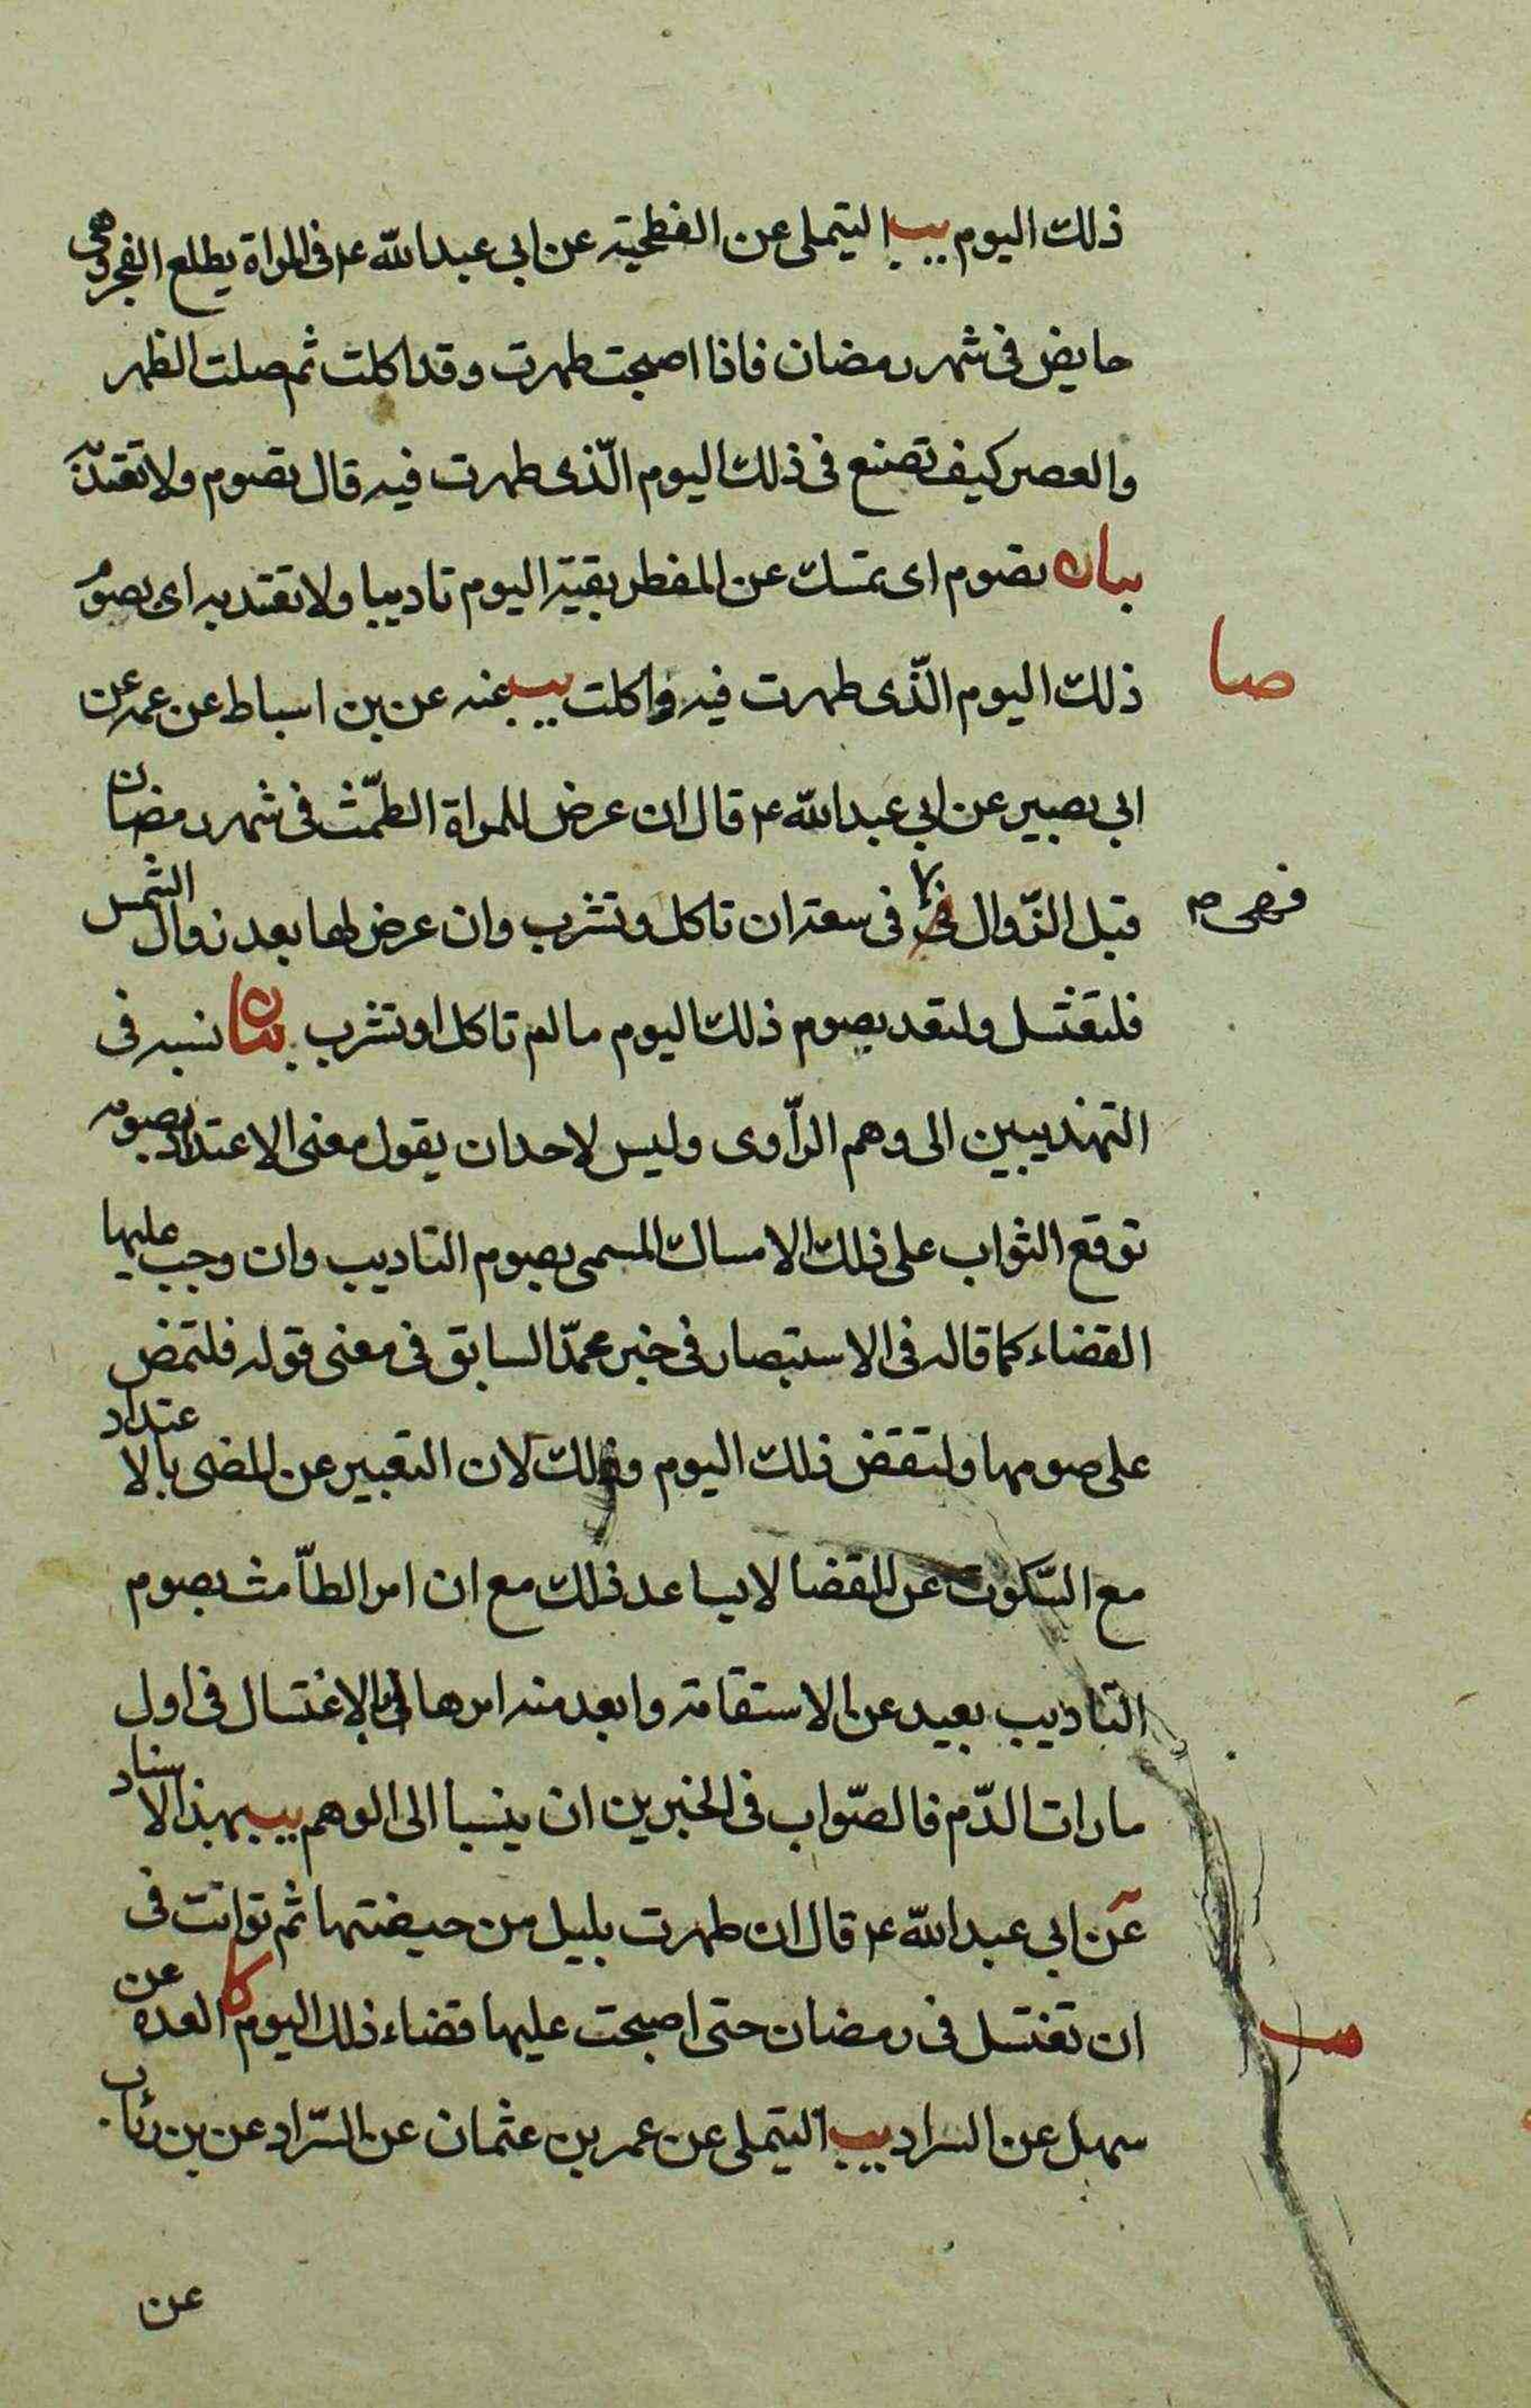 ذلك اليوم يب التيملى عن الفطحية عن ابي عبدالله ع في المراة يطلع الفجر وهى
حايض فى شهر رمضان فاذا اصبحت طهرت وقد اكلت ثم صلت الظهر
والعصر كيف تصنع فى ذلك اليوم الّذى طهرت فيه قال تصوم ولا تعتدّ
بيان تصوم اى تمسك عن المفطر بقية اليوم تاديبا ولا تعتد به اى بصوم
صا
ذلك اليوم الّذى طهرت فيه واكلت يب عنه عن بن اسباط عن عمه عن
ابي بصير عن ابي عبدالله ع قال ان عرض للمراة الطّمث فى شهر رمضان
فهى م
قبل الزّوال فى سعة ان تاكل وتشرب وان عرض لها بعد زوال الشمس
فلتغتسل ولتعد بصوم ذلك اليوم ما لم تاكل او تشرب بيان نسبه فى
التهذيبين الى وهم الرّاوى وليس لاحد ان يقول معنى الاعتداد بصومه
توقع الثواب على ذلك الامساك المسمى بصوم التاديب وان وجب عليها
القضاء كما قاله فى الاستبصار فى خبر محمّد السابق فى معنى قوله فلتمض
على صومها ولتقض ذلك اليوم وذلك لان التعبير عن المضى بالاعتداد
مع السّكوت عن القضا لا يساعد ذلك مع ان امر الطّامث بصوم
التاديب بعيد عن الاستقامة وابعد منه امرها بالاغتسال فى اول
مارات الدّم فالصّواب فى الخبرين ان ينسبا الى الوهم يب بهذا الاسناد
عن ابي عبدالله ع قال ان طهرت بليل من حيضتها ثم توانت فى
ان تغتسل فى رمضان حتى اصبحت عليها قضاء ذلك اليوم كا العدة عن
صب
سهل عن السراد يب التيملى عن عمر بن عثمان عن السّراد عن بن رئاب
عن